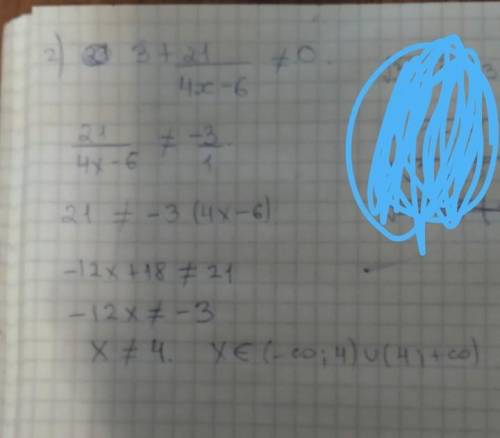 2) 3 + 21/(4x-6) ≠ 0.
21/(4x-6) ≠ -3/1
21 ≠ -3 (4x-6)
-12x+18 ≠ 21
-12x ≠ -3
x ≠ 4. x ∈ (-∞; 4) ∪ (4; +∞)